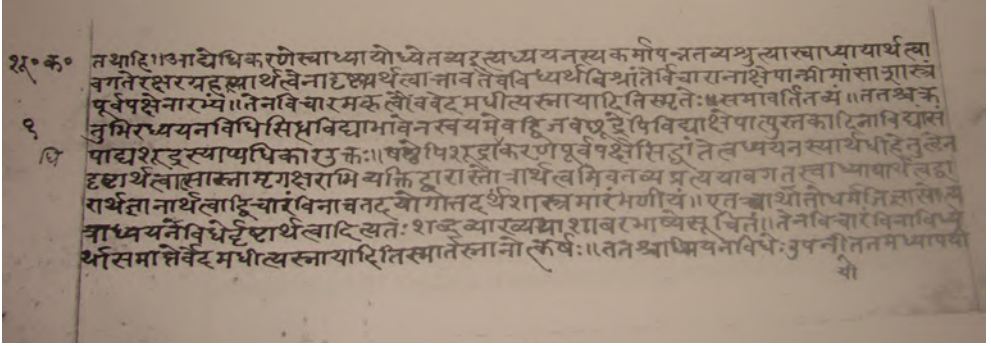 शू॰ क॰
तथाहि॥ आद्येधिकरणेस्वाध्यायोध्येतव्यइत्यध्ययनस्यकर्मापन्नतव्यश्रुत्यास्वाध्यायार्थत्वा
वगतेरक्षरग्रहणस्यार्थत्वेनादृष्टार्थत्वात्तावतैवविध्यर्थविश्रांतेर्विचारानाक्षेपान्मीमांसाशास्त्रं
पूर्वपक्षेनारभ्यं॥ तेनविचारमकृत्वैववेदमधीत्यस्नायादितिस्मृतेः॥ समावर्तितव्यं॥ ततश्चक्र
९
तुभिरध्ययनविधिसिद्धविद्याभावेनस्वयमेवद्विजवच्छूद्रेपिविद्याक्षेपात्पुस्तकादिनाविद्यांसं
पाद्यशूद्रस्याप्यधिकारउक्तः॥ षष्ठेपिशूद्राकरणेपूर्वपक्षेसिद्धांतेत्वध्ययनस्यार्थधीहेतुत्वेन
धि
दृष्टार्थत्वात्साम्नामृगक्षराभिव्यक्तिद्वारास्तोत्रार्थत्वमिवतव्यप्रत्ययावगतस्वाध्यायार्थत्वद्वा
रार्थज्ञानार्थत्वाद्विचारंविनावतदयोगात्तदर्थशास्त्रमारंभणीयं॥ एतच्चाथातोधर्मजिज्ञासेत्य
त्राध्ययनविधेर्दृष्टार्थत्वादित्यतःशब्दव्याख्ययाशाबरभाष्येसूचितं॥ तेनविचारंविनाविध्य
र्थासमाप्तेर्वेदमधीत्यस्नायादितिस्मार्तस्नानोत्कर्षः॥ ततश्चाध्ययनविधेःउपनीततमध्यापये
यी